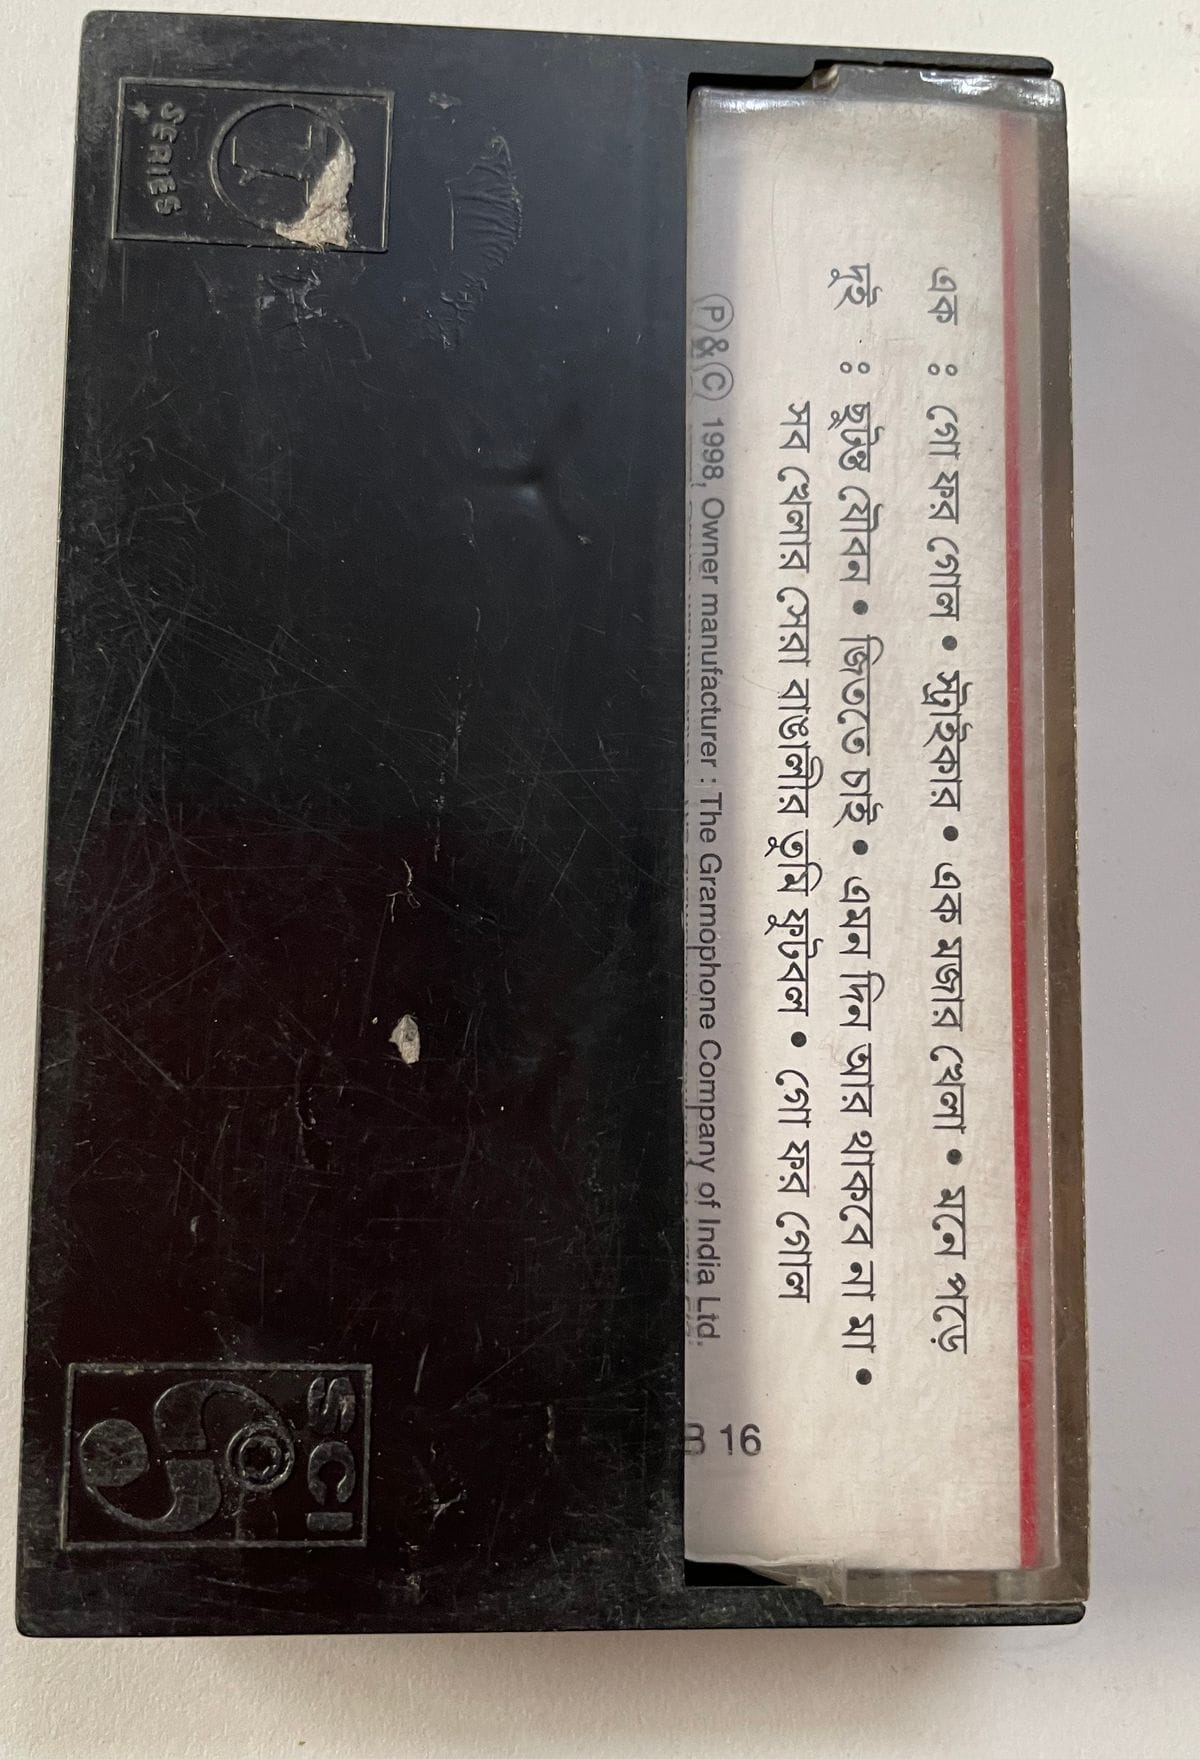 এক : গো ফর গোল • স্ট্রাইকার • এক মজার খেলা • মনে পড়ে
দুই : ছুটন্ত যৌবন • জিততে চাই • এমন দিন আর থাকবে না মা •
সব খেলার সেরা বাঙালীর তুমি ফুটবল • গো ফর গোল
Ⓟ & Ⓒ 1998, Owner manufacturer : The Gramophone Company of India Ltd.
16
T
SERIES
SCI